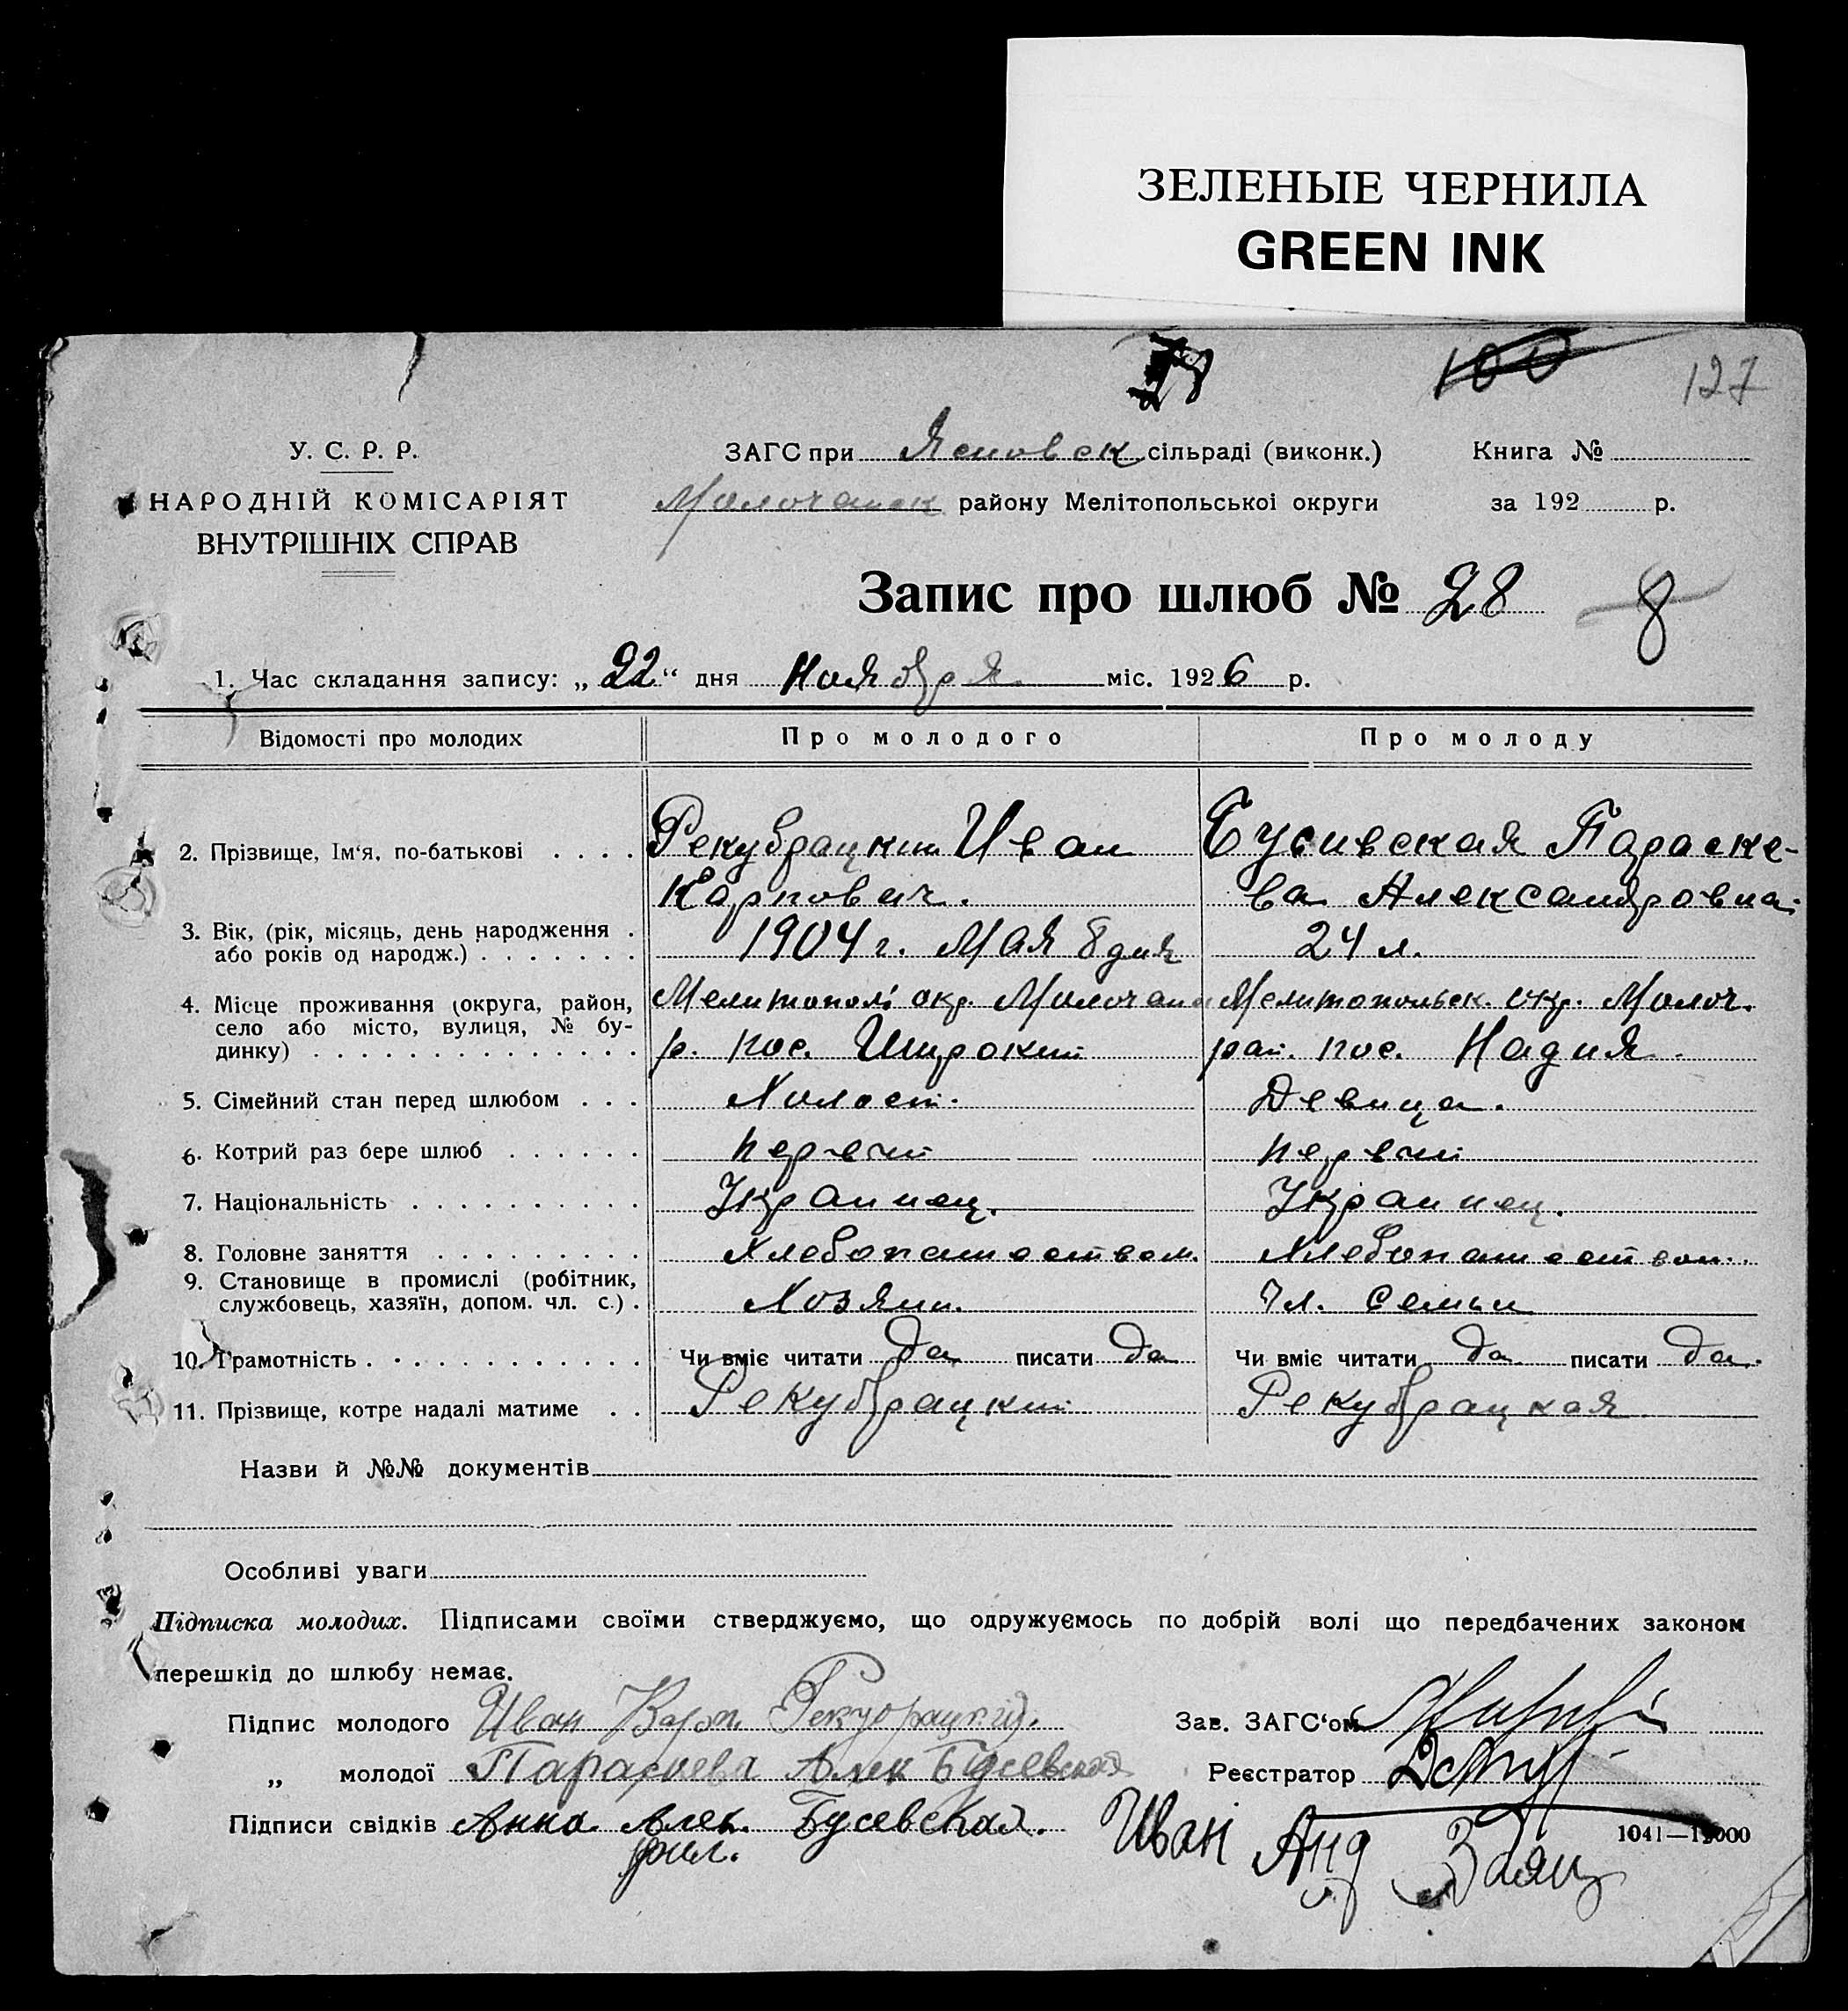 ЗЕЛЕНЫЕ ЧЕРНИЛА
GREEN INK
100 127
У. С. Р. Р.
НАРОДНІЙ КОМІСАРІЯТ
ВНУТРІШНІХ СПРАВ
ЗАГС при Ясновск сільраді (виконк.)
Молочанск району Мелітопольскоі округи
Книга №
за 192 р.
Запис про шлюб № 28 8
1. Час складання запису: „22“ дня Ноября міс. 1926 р.
Відомості про молодих Про молодого Про молоду
2. Прізвище, Ім‘я, по-батькові . . . .
Рекубрацкий Иван
Карпович.
Бусивская Параске-
ва Александровна
3. Вік, (рік, місяць, день народження .
або років од народж.) . . . . . . .
1904 г. мая 8 дня
24 л.
4. Місце проживання (округа, район,
село або місто, вулиця, № бу-
динку) . . . . . . . . . . . . . .
Мелитопол окр. Молочан
р. пос. Широкий
Мелитопольск. окр. Молоч.
рай. пос. Надия.
5. Сімейний стан перед шлюбом . . . Холост. Девица.
6. Котрий раз бере шлюб . . . . . . первый первый
7. Національність . . . . . . . . . . Украинец. Украинец.
8. Головне заняття . . . . . . . . . Хлебопашеством. Хлебопашеством.
9. Становище в промислі (робітник,
службовець, хазяїн, допом. чл. с.) . Хозяин. Чл. семьи
10. Грамотність . . . . . . . . . . . Чи вміє читати да писати да Чи вміє читати да писати да.
11. Прізвище, котре надалі матиме . . Рекубрацкий Рекубрацкая
Назви й №№ документів
Особливі уваги
Підписка молодих. Підписами своїми стверджуємо, що одружуємось по добрій волі що передбачених законом
перешкід до шлюбу немає.
Підпис молодого Иван Карп. Рекубрацкий. Зав. ЗАГС‘ом
„ молодої Параскева Алек Бусевская Реєстратор
Підписи свідків Анна Алек. Бусевская. Иван Анд Заяц
1041—15000